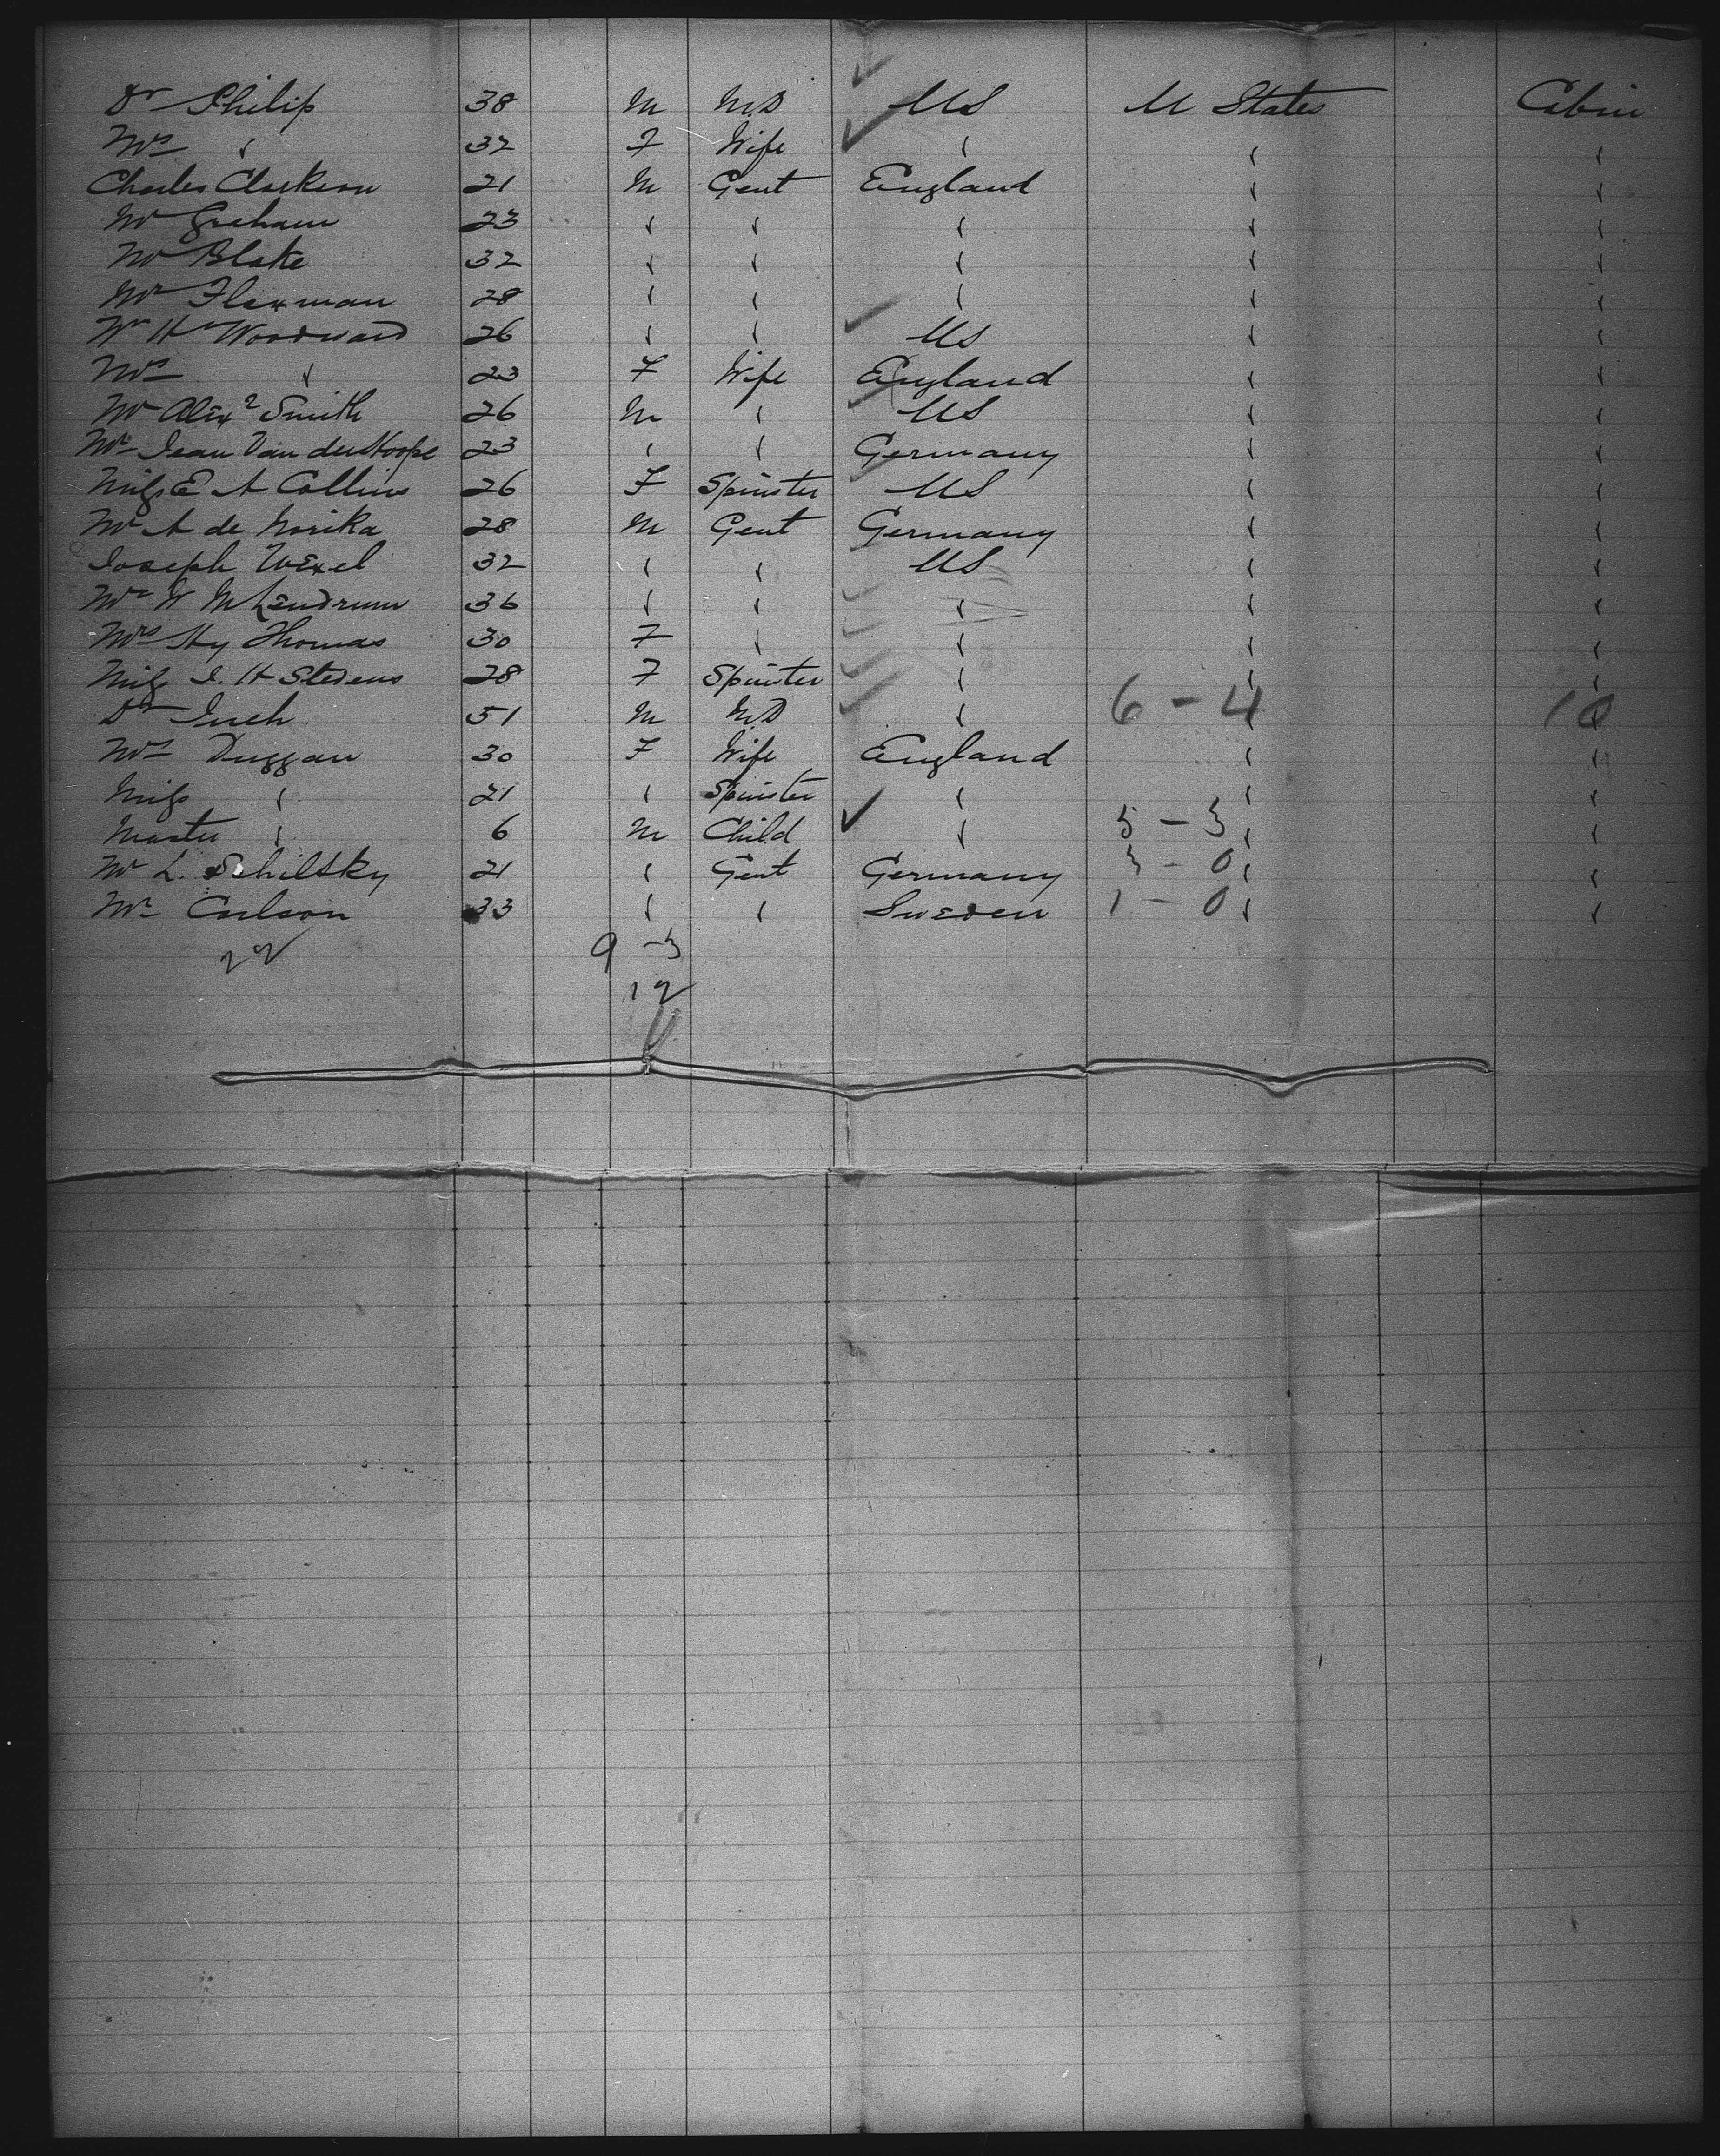 Dr Philip 38 M M.D US U States Cabin
Mrs " 32 F Wife " " "
Charles Clarkson 21 M Gent England " "
Mr Graham 23 " " " " "
Mr Blake 32 " " " " "
Mr Flaxman 28 " " " " "
Wm H Woodward 26 " " US " "
Mrs " 23 F Wife England " "
Mr Alexr Smith 26 M " US " "
Mr Jean Van der Hoope 23 " " Germany " "
Miss E A Collins 26 F Spinster US " "
Mr A de Norika 28 M Gent Germany " "
Joseph Wexel 32 " " US " "
Mr W McLendrum 36 " " " " "
Mrs Hy Thomas 30 F " " " "
Miss I. H Stevens 28 F Spinster " " "
Dr Inch 51 M M.D " 6 - 4 " 10
Mrs Duggan 30 F Wife England " "
Miss " 21 " Spinster " " "
Master " 6 M Child " 5 - 3 " "
Mr L. Schilsky 21 " Gent Germany 3 - 0 " "
Mr Carlson 33 " " Sweden 1 - 0 " "
22 9 - 3
12